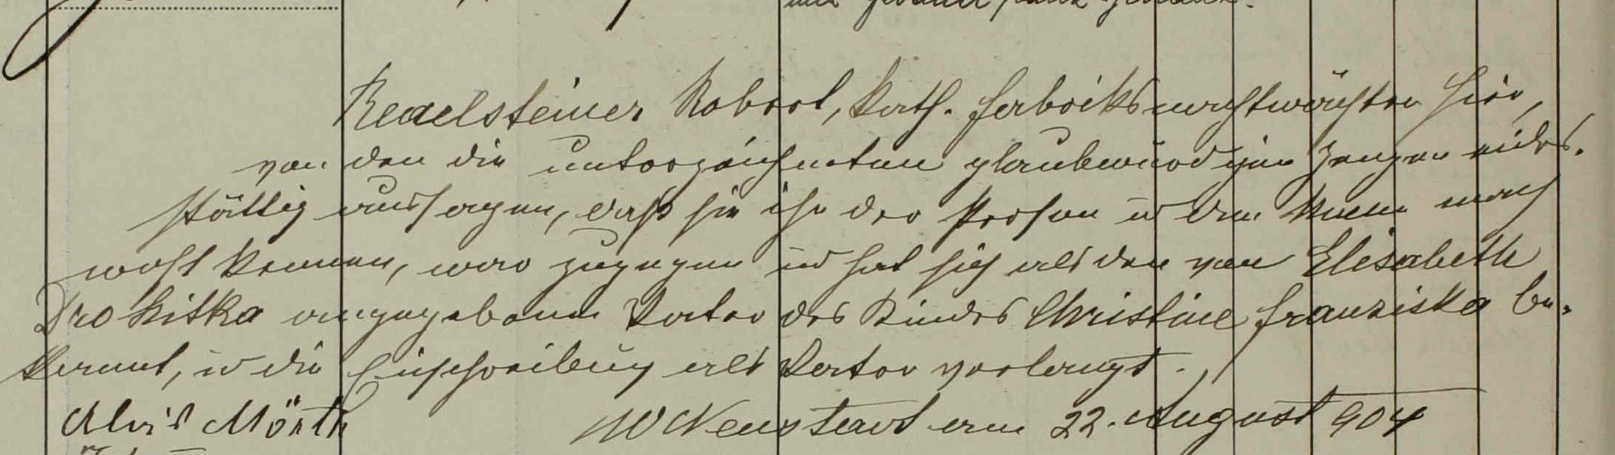 Readelsteiner Robert, kath. Fabriksnachtwächter hier,
von den die unterzeichneten glaubwürdigen Zeugen eides-
stättig aussagen, daß sie ihn der Person u dem Namen nach
wohl kennen, war zugegen u hat sich als den von Elisabeth
Drokitka angegebenen Vater des Kindes Christine Franziska be-
kannt, u die Einschreibung als Vater verlangt.
Alois Mörth W Neustadt am 22. August 904